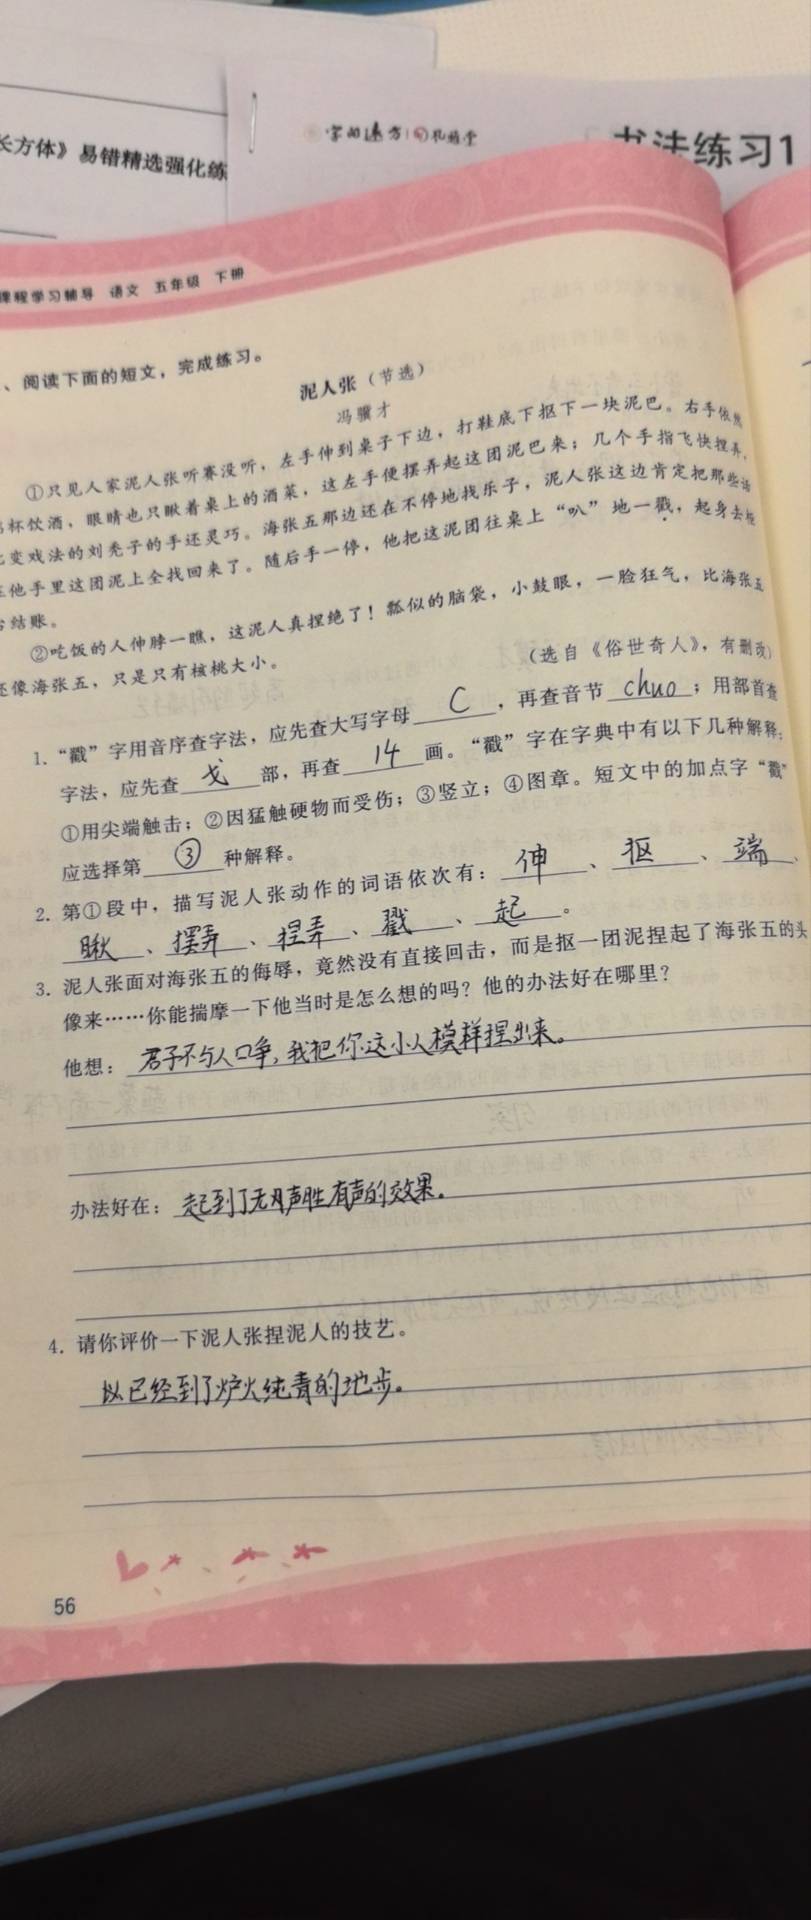 长方体》易错精选强化练
书法练习1
课程学习辅导 语文 五年级 下册
、阅读下面的短文，完成练习。
泥人张（节选）
冯骥才
①只见人家泥人张听赛没听，左手伸到桌子下边，打鞋底下抠下一块泥巴。右手依然
杯饮酒，眼睛也只瞅着桌上的酒菜，这左手便摆弄起这团泥巴来；几个手指飞快捏弄，
变戏法的刘秃子的手还灵巧。海张五那边还在不停地找乐子，泥人张这边肯定把那些话
他手里这团泥上全找回来了。随后手一停，他把这泥团往桌上“叭”地一戳，起身去柜
结账。
②吃饭的人伸脖一瞧，这泥人真捏绝了！瓢似的脑袋，小鼓眼，一脸狂气，比海张五
还像海张五，只是只有核桃大小。
（选自《俗世奇人》，有删改）
1. “戳”字用音序查字法，应先查大写字母 C ，再查音节 chuo ；用部首查
字法，应先查 戈 部，再查 14 画。“戳”字在字典中有以下几种解释：
①用尖端触击；②因猛触硬物而受伤；③竖立；④图章。短文中的加点字“戳”
应选择第 ③ 种解释。
2. 第①段中，描写泥人张动作的词语依次有： 伸 、 抠 、 端 、
瞅 、 摆弄 、 捏弄 、 戳 、 起 。
3. 泥人张面对海张五的侮辱，竟然没有直接回击，而是抠一团泥捏起了海张五的头
像来……你能揣摩一下他当时是怎么想的吗？他的办法好在哪里？
他想： 君子不与人口争，我把你这小人模样捏出来。
办法好在： 起到了无声胜有声的效果。
4. 请你评价一下泥人张捏泥人的技艺。
已经到了炉火纯青的地步。
56